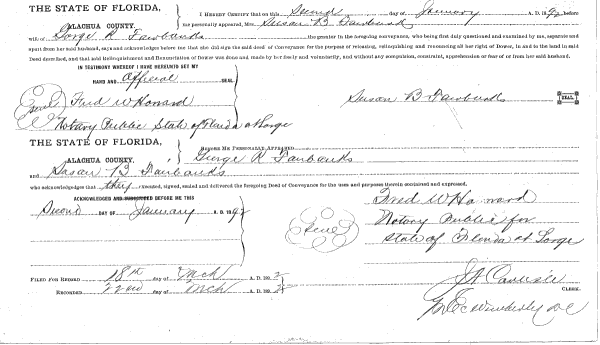 THE STATE OF FLORIDA,
ALACHUA COUNTY.
I HEREBY CERTIFY that on this Second day of January A. D. 1892 before
me personally appeared, Mrs. Susan B Fairbanks
wife of George R Fairbanks the grantor in the foregoing conveyance, who being first duly questioned and examined by me, separate and
apart from her said husband, says and acknowledges before me that she did sign the said deed of Conveyance for the purpose of releasing, relinquishing and renouncing all her right of Dower, in and to the land in said
Deed described, and that said Relinquishment and Renunciation of Dower was done and made by her freely and voluntarily, and without any compulsion, constraint, apprehension or fear of or from her said husband.
IN TESTIMONY WHEREOF I HAVE HEREUNTO SET MY
HAND AND official SEAL
Seal Fred W Howard
Notary Public State of Florida at Large
Susan B Fairbanks SEAL
THE STATE OF FLORIDA,
ALACHUA COUNTY.
BEFORE ME PERSONALLY APPEARED
George R Fairbanks
and Susan B Fairbanks
who acknowledges that they executed, signed, sealed and delivered the foregoing Deed of Conveyance for the uses and purposes therein contained and expressed.
ACKNOWLEDGED AND BEFORE ME THIS
Second DAY OF January A. D. 1892
Seal
Fred W Howard
Notary Public for
State of Florida at Large
FILED FOR RECORD 18th day of Mch A. D. 1892
RECORDED 22nd day of Mch A. D. 189
CLERK.
Wimberly DC